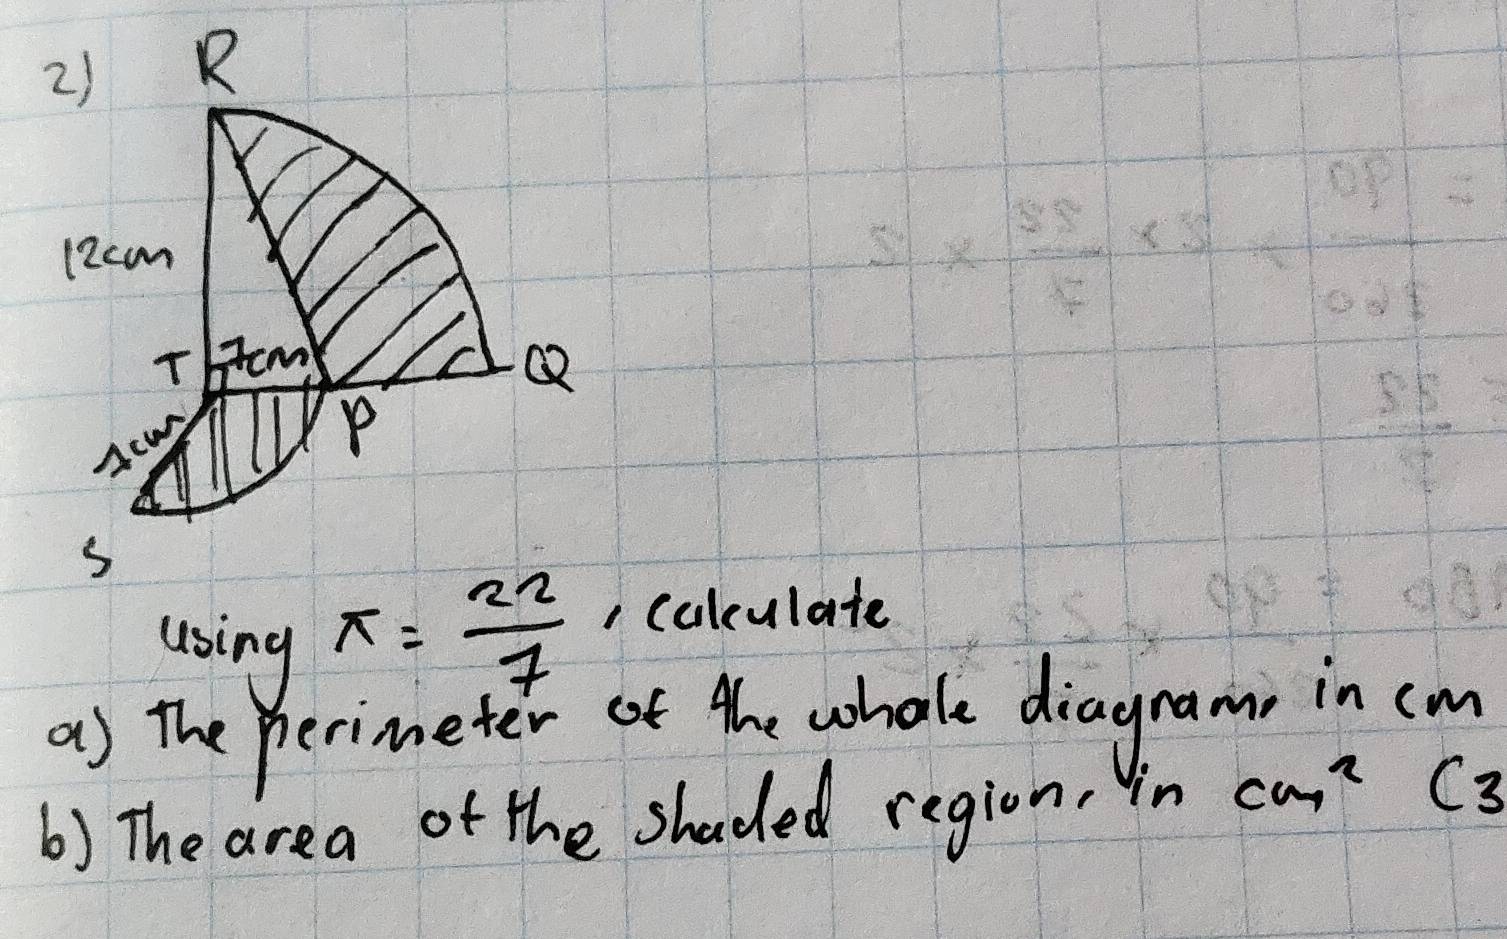 2)
R
12cm
T
7cm
Q
P
7cm
S
using π = 22/7, calculate
a) The perimeter of the whole diagram, in cm
b) The area of the shaded region, in cm² (3